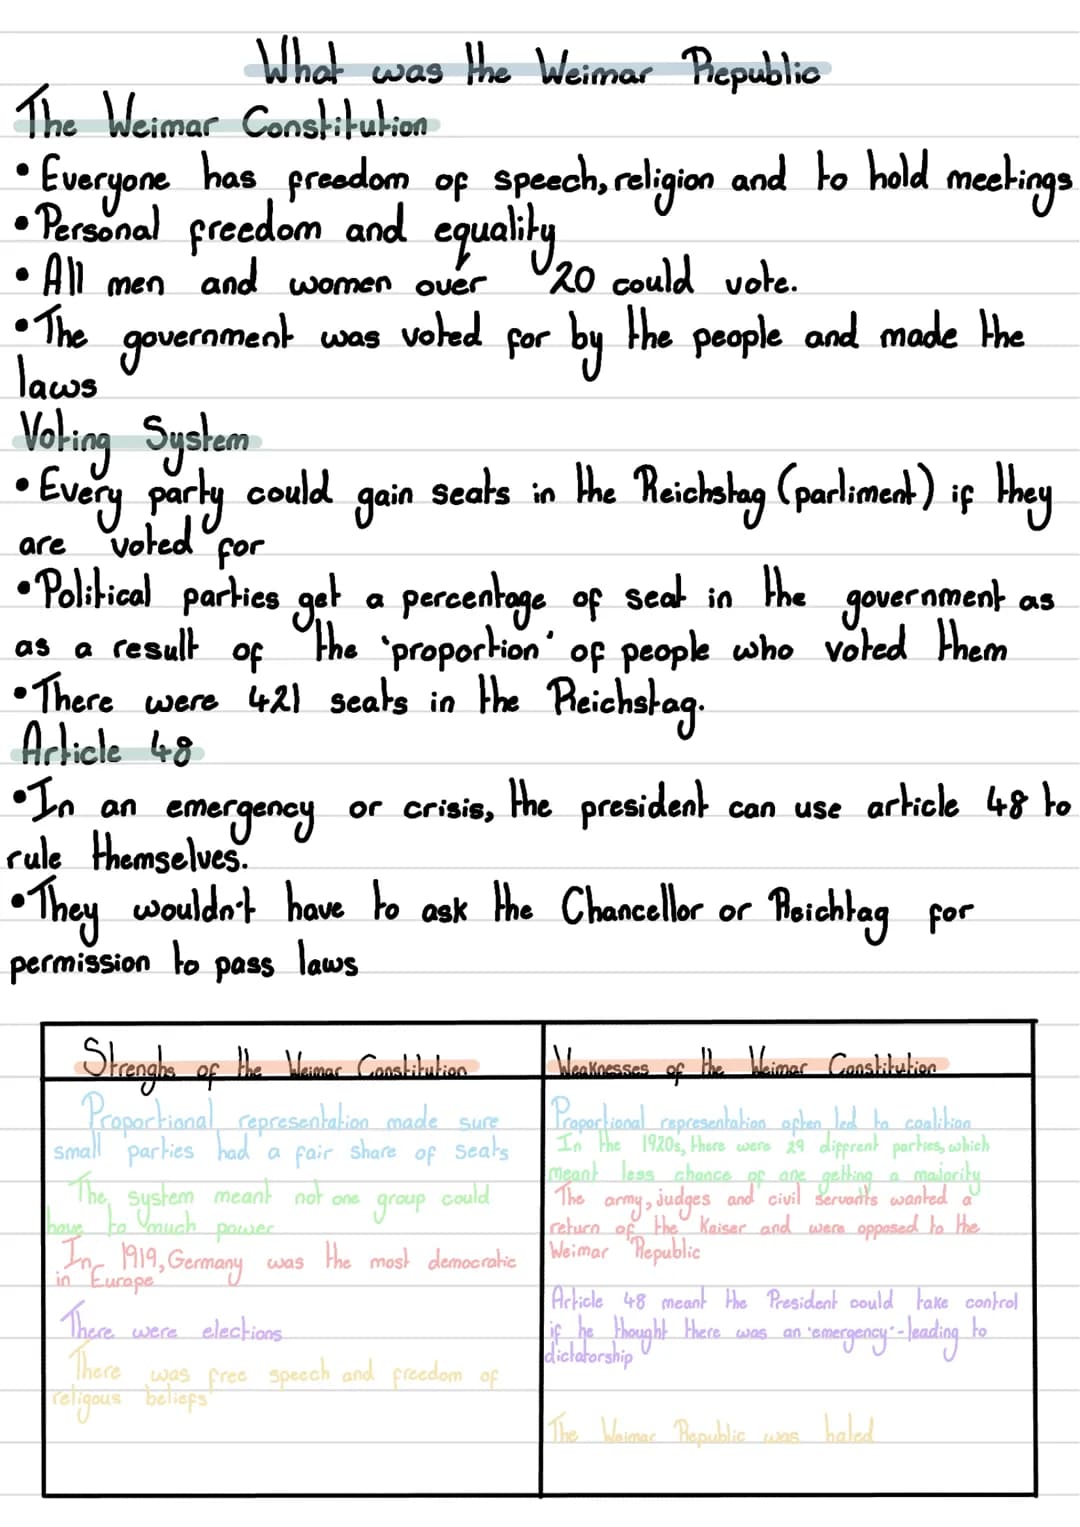 What was the Weimar Republic
The Weimar Constitution
• Everyone has freedom of speech, religion and to hold meetings
• Personal freedom and equality
• All men and women over 20 could vote.
• The government was voted for by the people and made the
laws
Voting System
• Every party could gain seats in the Reichstag (parliment) if they
are voted for
• Political parties get a percentage of seat in the government as
as a result of the 'proportion' of people who voted them
• There were 421 seats in the Reichstag.
Article 48
• In an emergency or crisis, the president can use article 48 to
rule themselves.
• They wouldn't have to ask the Chancellor or Reichtag for
permission to pass laws
Strenghs of the Weimar Constitution
Proportional representation made sure
small parties had a fair share of seats
The system meant not one group could
have to much power
In 1919, Germany was the most democratic
in Europe
There were elections
There was free speech and freedom of
religous beliefs
Weaknesses of the Weimar Constitution
Proportional representation often led to coalition
In the 1920s, there were 29 different parties, which
meant less chance of one getting a majority
The army, judges and civil servants wanted a
return of the Kaiser and were opposed to the
Weimar Republic
Article 48 meant the President could take control
if he thought there was an 'emergency' - leading to
dictatorship
The Weimar Republic was hated